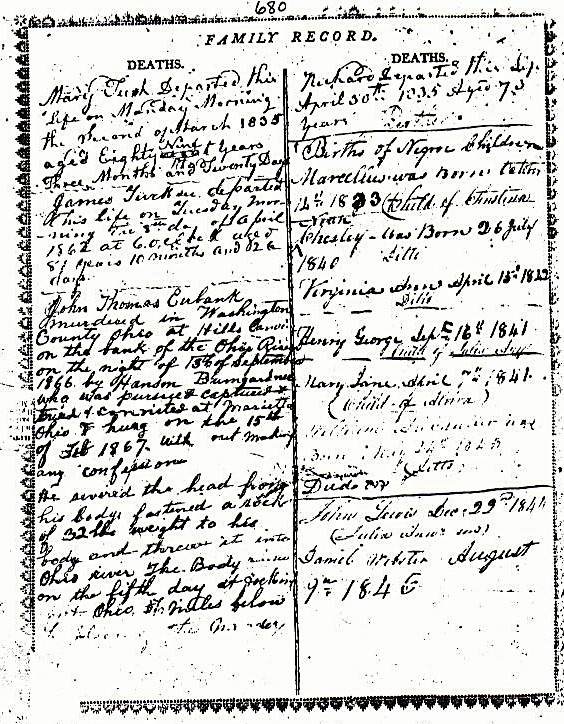 680
FAMILY RECORD.
DEATHS.
Mary Turk Departed this
life on Monday Morning
the Second of March 1835
aged Eighty Nine years
Three Months and Twenty Days
James Turk sen. departed
this life on Tuesday mor-
ning the 8th da. of April
1862 at 6.0.clock aged
87 years 10 months and 26
days
John Thomas Eubank
murdered in Washington
County Ohio at Hills
on the bank of the Ohio River
on the night of 13th of September
1866 by Hanson Bumgardner
who was pursued captured &
tryed & convicted at Marietta
Ohio & hung on the 15th
of Feb 1867 with out making
any confession
He severed the head from
his body fastened a rock
of 32 lbs weight to his
body and threw it into
Ohio river The Body
on the fifth day at Hocking
Ohio miles below
DEATHS.
Richard Departed this life
April 30th 1835 Aged 73
years
Births of Negroe Children
Marcellus was Born
14th 1833 (Child of Christina
Chesley was Born 26 July
1840 Ditto
Virginia Ann April 15th
Ditto
Henry George Sept 16th 1841
Child of Julia Ann
Mary Jane April 7th 1841
(Child of
was
Born May 24th
Ditto
Died
John Lewis Dec 29th 1844
(Julia Anns son)
Daniel Webster August
9th 1846